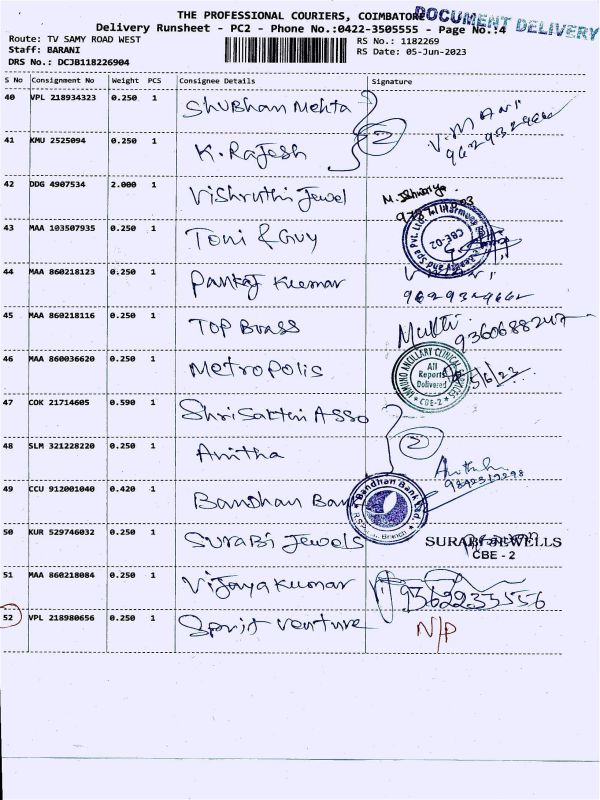 THE PROFESSIONAL COURIERS, COIMBATORE
DOCUMENT DELIVERY
Delivery Runsheet - PC2 - Phone No.:0422-3505555 - Page No.:4
Route: TV SAMY ROAD WEST
RS No.: 1182269
Staff: BARANI
RS Date: 05-Jun-2023
DRS No.: DCJB118226904
S No Consignment No Weight PCS Consignee Details Signature
40 VPL 218934323 0.250 1 Shubhan Mehta
V. MANI
9629329662
41 KMU 2525094 0.250 1 K. Rajesh
2
42 DDG 4907534 2.000 1 Vishruthi Jewel
43 MAA 103507935 0.250 1 Toni & Guy
CBE-02
44 MAA 860218123 0.250 1 Pankaj Kumar
9629329662
45 MAA 860218116 0.250 1 Top Brass Mukti
9360688247
46 MAA 860036620 0.250 1 Metropolis
IMMUNO ANCILLARY CLINICAL SERVICES
All Reports Delivered
CBE-2
5/6/23
47 COK 21714605 0.590 1 Shri Sakthi Asso
2
48 SLM 321228220 0.250 1 Anitha
49 CCU 912001040 0.420 1 Bandhan Ban
Bandhan Bank Ltd.
Branch
50 KUR 529746032 0.250 1 Surabi Jewels
SURABI JEWELLS
CBE - 2
51 MAA 860218084 0.250 1 Vijaya Kumar
9362233556
52 VPL 218980656 0.250 1 Sprit Venture N/P